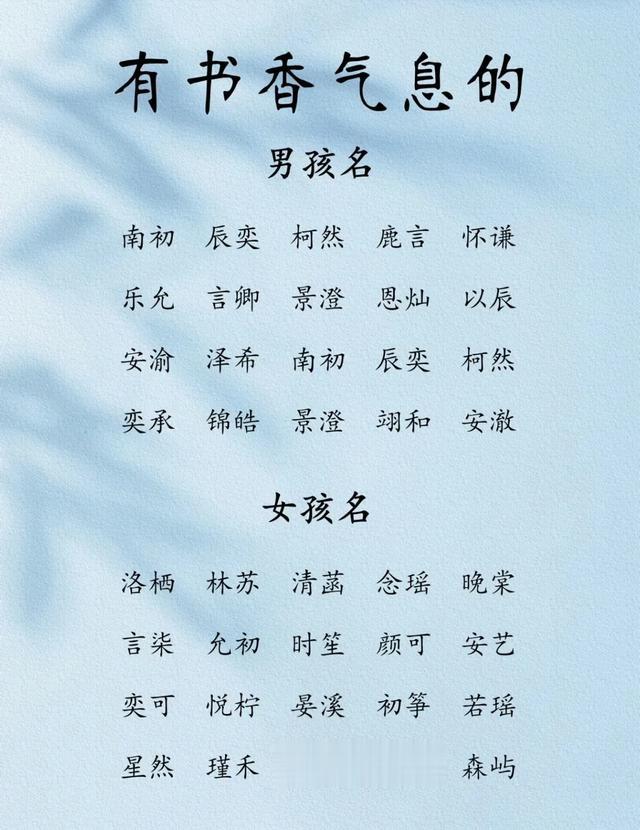 有书香气息的
男孩名
南初 辰奕 柯然 鹿言 怀谦
乐允 言卿 景澄 恩灿 以辰
安渝 泽希 南初 辰奕 柯然
奕承 锦皓 景澄 翊和 安澈
女孩名
洛栖 林苏 清菡 念瑶 晚棠
言柒 允初 时笙 颜可 安艺
奕可 悦柠 晏溪 初筝 若瑶
星然 瑾禾 森屿